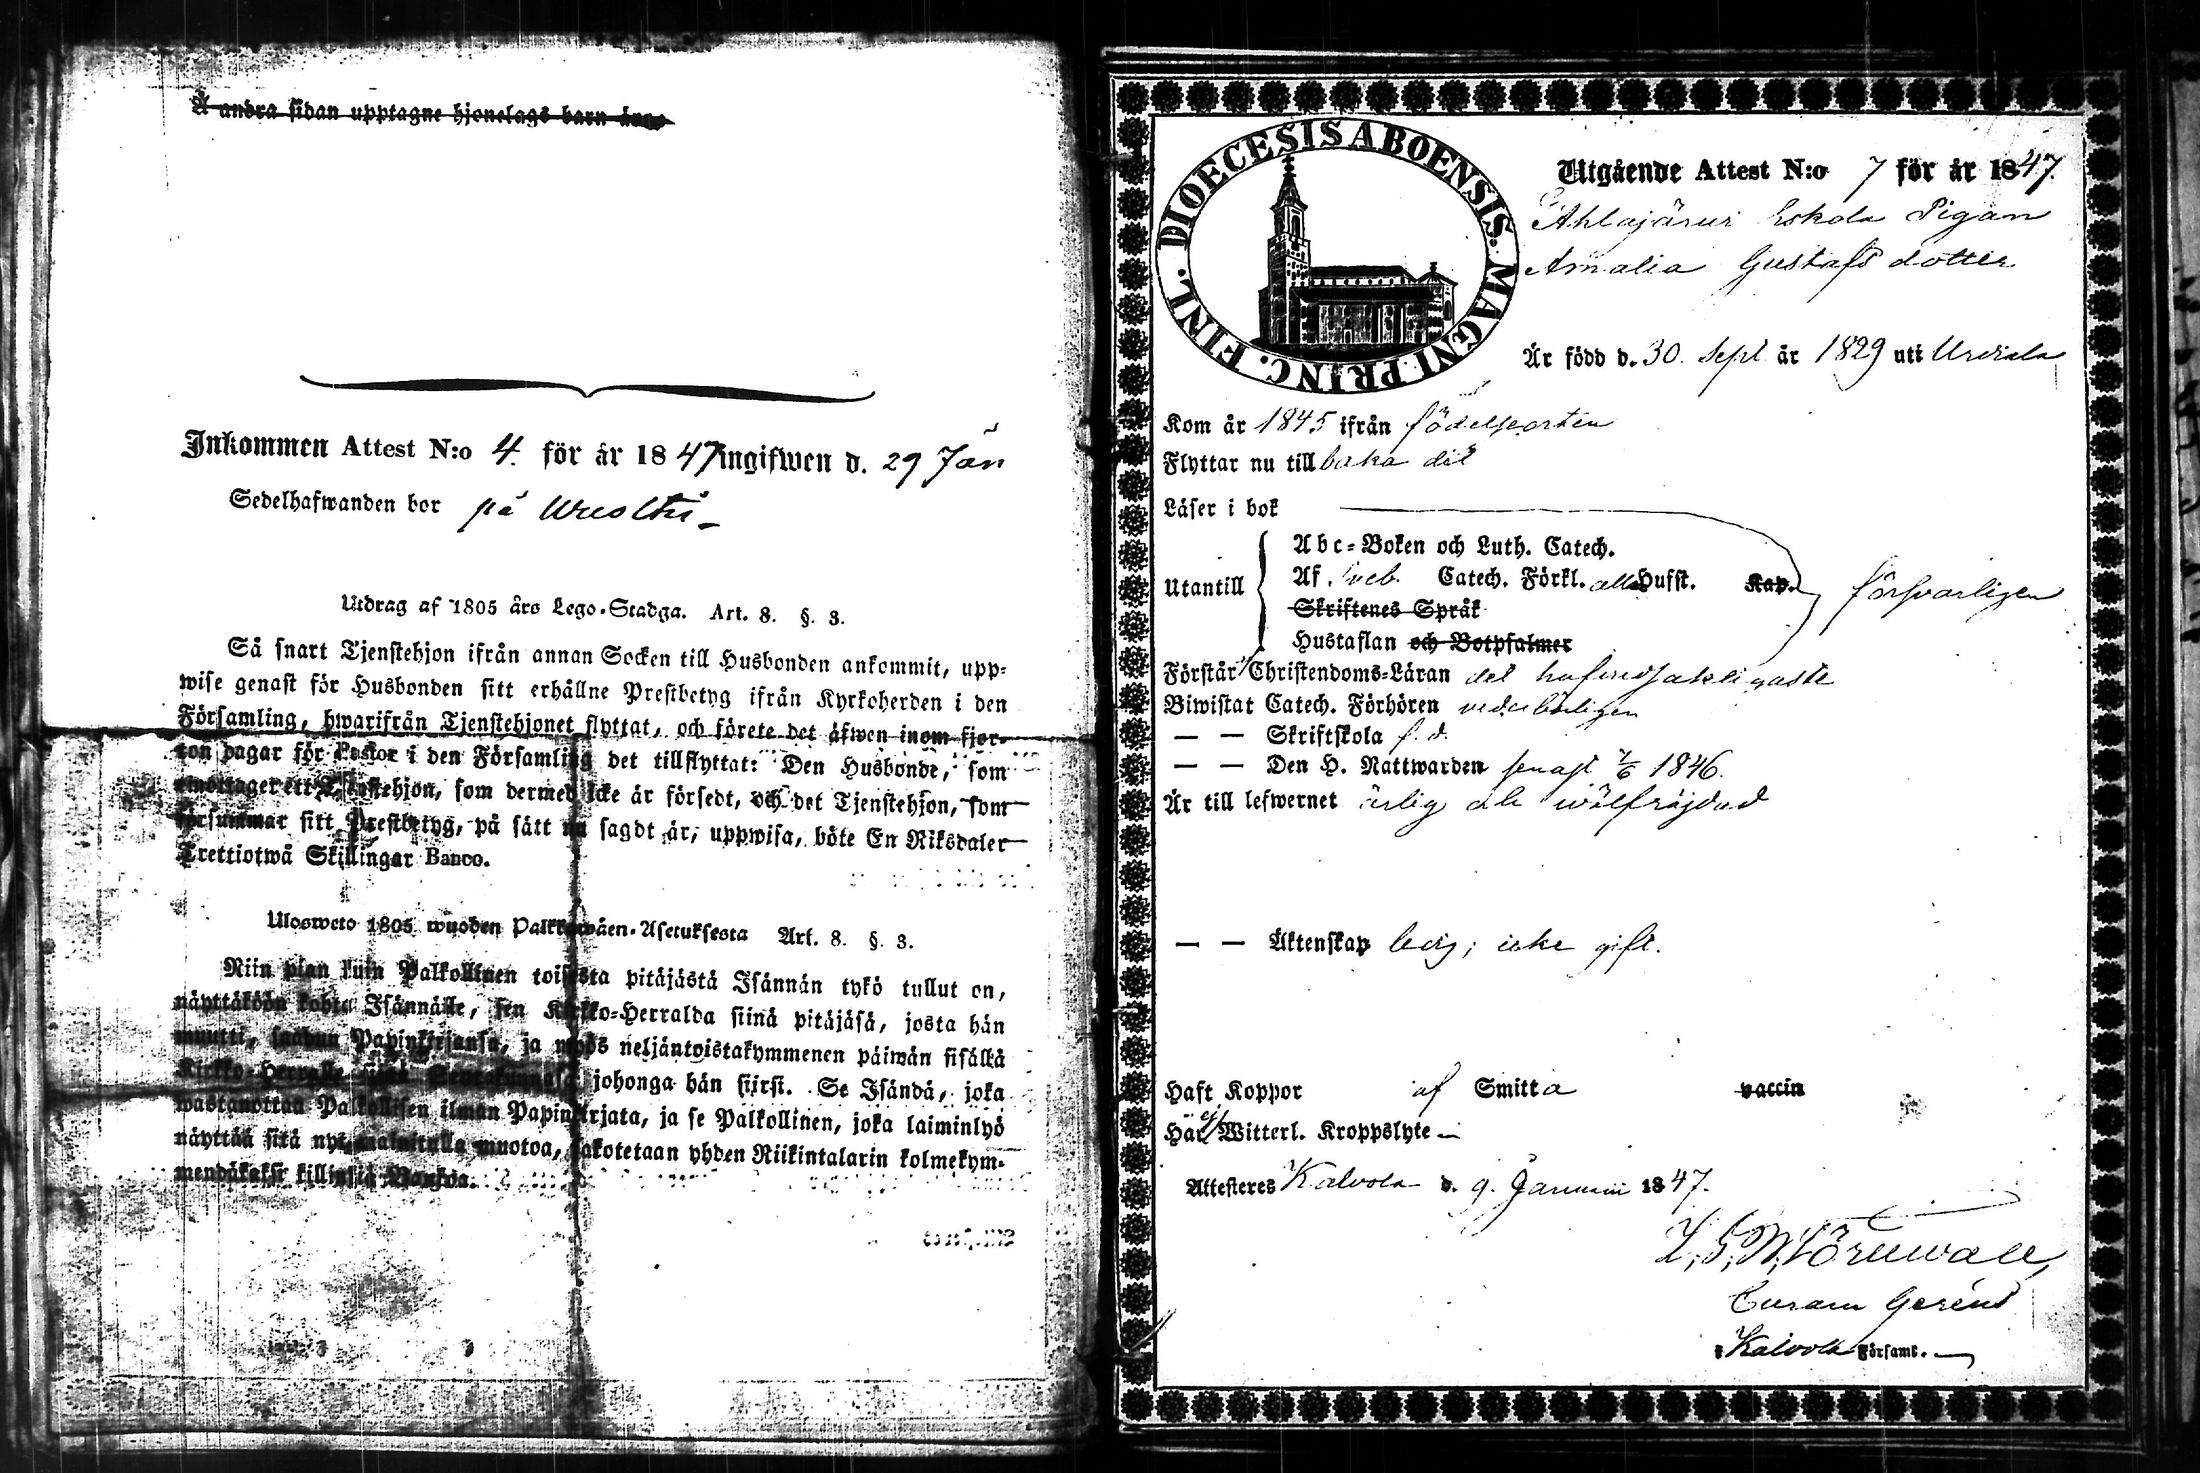 Å andra sidan upptagne hjonelags barn äro
Inkommen Attest N:o 4. för år 1847 ingifwen d. 29 Jan
Sedelhafwanden bor på
Utdrag af 1805 års Lego-Stadga. Art. 8. §. 3.
Så snart Tjenstehjon ifrån annan Socken till Husbonden ankommit, upp-
wise genast för Husbonden sitt erhållne Prestbetyg ifrån Kyrkoherden i den
Församling, hwarifrån Tjenstehjonet flyttat, och förete det äfwen inom fjor-
ton dagar för Pastor i den Församling det tillflyttat: Den Husbonde, som
emottager ett Tjenstehjon, som dermed icke är försedt, och det Tjenstehjon, som
försummar sitt Prestbetyg, på sätt nu sagdt är, uppwisa, böte En Riksdaler
Trettiotwå Skillingar Banco.
Ulosweto 1805 wuoden Palkkawäen-Asetuksesta Art. 8. §. 3.
Niin pian kuin Palkollinen toisesta pitäjästä Isännän tykö tullut on,
näyttäköön kohta Isännälle, sen Kirkko-Herralda siinä pitäjäsä, josta hän
muutti, saadun Papinkirjansa, ja myös neljäntoistakymmenen päiwän sisällä
Kirkko-Herralle siinä Seurakunnasa johonga hän siirsi. Se Isändä, joka
wastanottaa Palkollisen ilman Papinkirjata, ja se Palkollinen, joka laiminlyö
näyttää sitä nyt mainitulla muotoa, sakotetaan yhden Riikintalarin kolmekym-
mendäkaksi killinkiä Bankoa.
DIOECESIS ABOENSIS. MAGNI PRINC. FINL.
Utgående Attest N:o 7 för år 1847.
Ahlajärvi Eskola Pigan
Amalia Gustafs dotter
Är född d. 30. Sept år 1829 uti Urdiala
Kom år 1845 ifrån födelseorten
Flyttar nu till baka dit
Läser i bok
Abc-Boken och Luth. Catech.
Utantill Af Sveb. Catech. Förkl. alla Hufst. Kap. försvarligen
Skriftenes Språk
Hustaflan och Botpsalmer
Förstår Christendoms-Läran det hufvudsakligaste
Biwistat Catech. Förhören vederbörligen
— — Skriftskola f. d.
— — Den H. Nattwarden senast 7/6 1846.
Är till lefwernet ärlig och wälfräjdad
— — Äktenskap ledig; icke gift.
Haft Koppor af Smitta vaccin
Har ej Witterl. Kroppslyte
Attesteres Kalvola d. 9. Januarii 1847.
Curam Gerens
i Kalvola Församl.